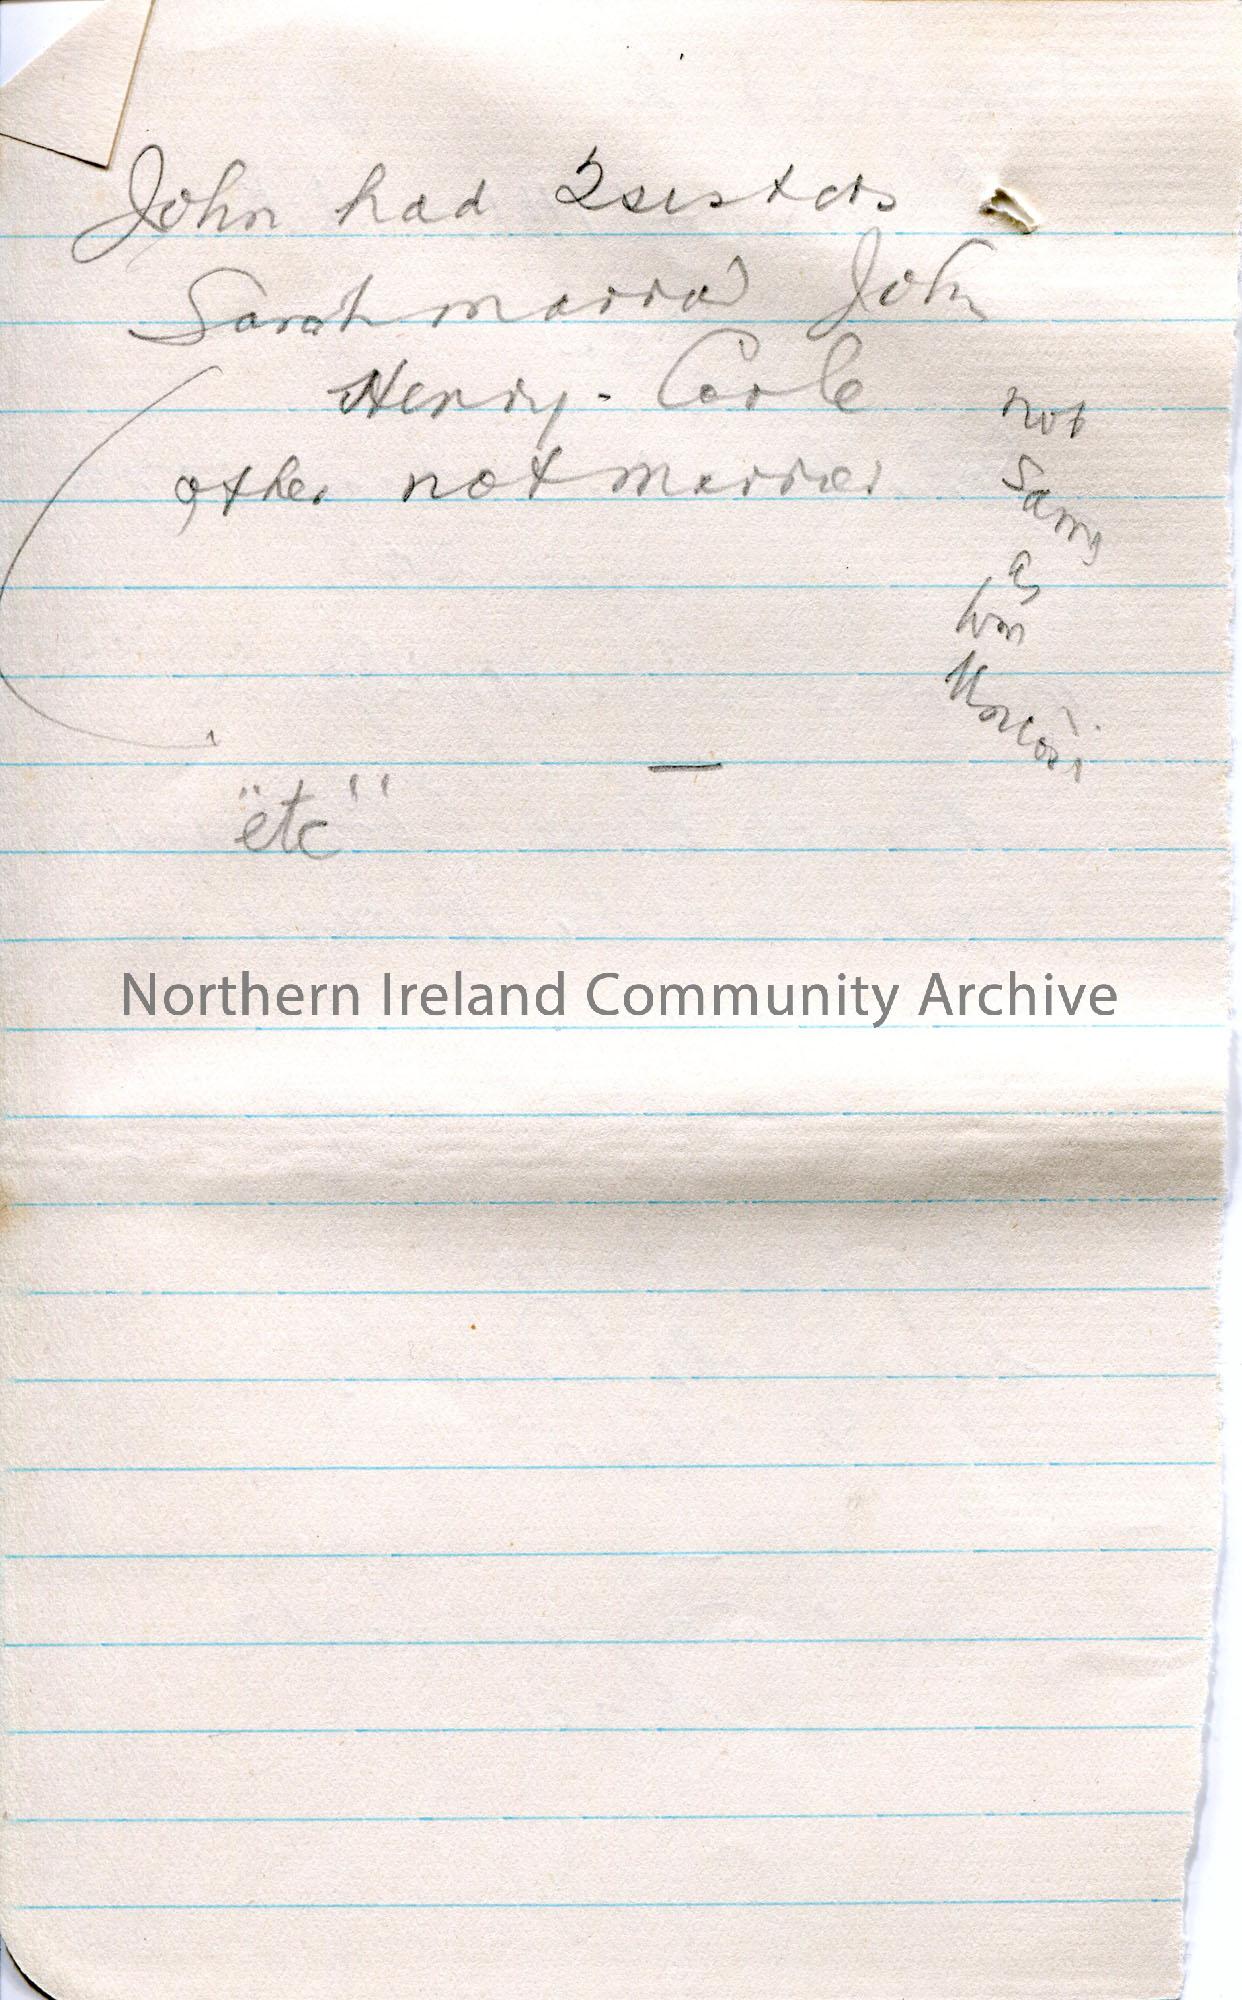 John had 2 sisters
Sarah married John
Henry - Carle
other not married
not
Samy
as
Wm
"etc"
Northern Ireland Community Archive